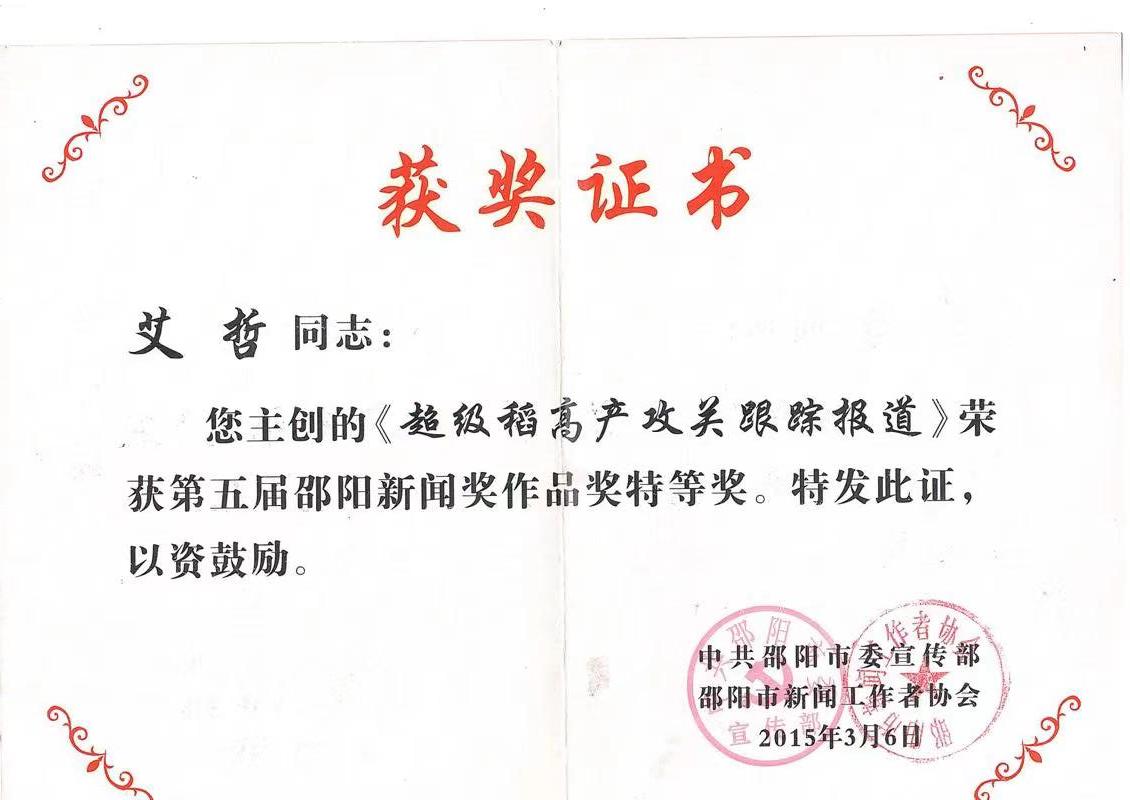 获奖证书
艾 哲 同志：
您主创的《超级稻高产攻关跟踪报道》荣
获第五届邵阳新闻奖作品奖特等奖。特发此证，
以资鼓励。
中共邵阳市委宣传部
邵阳市新闻工作者协会
2015年3月6日